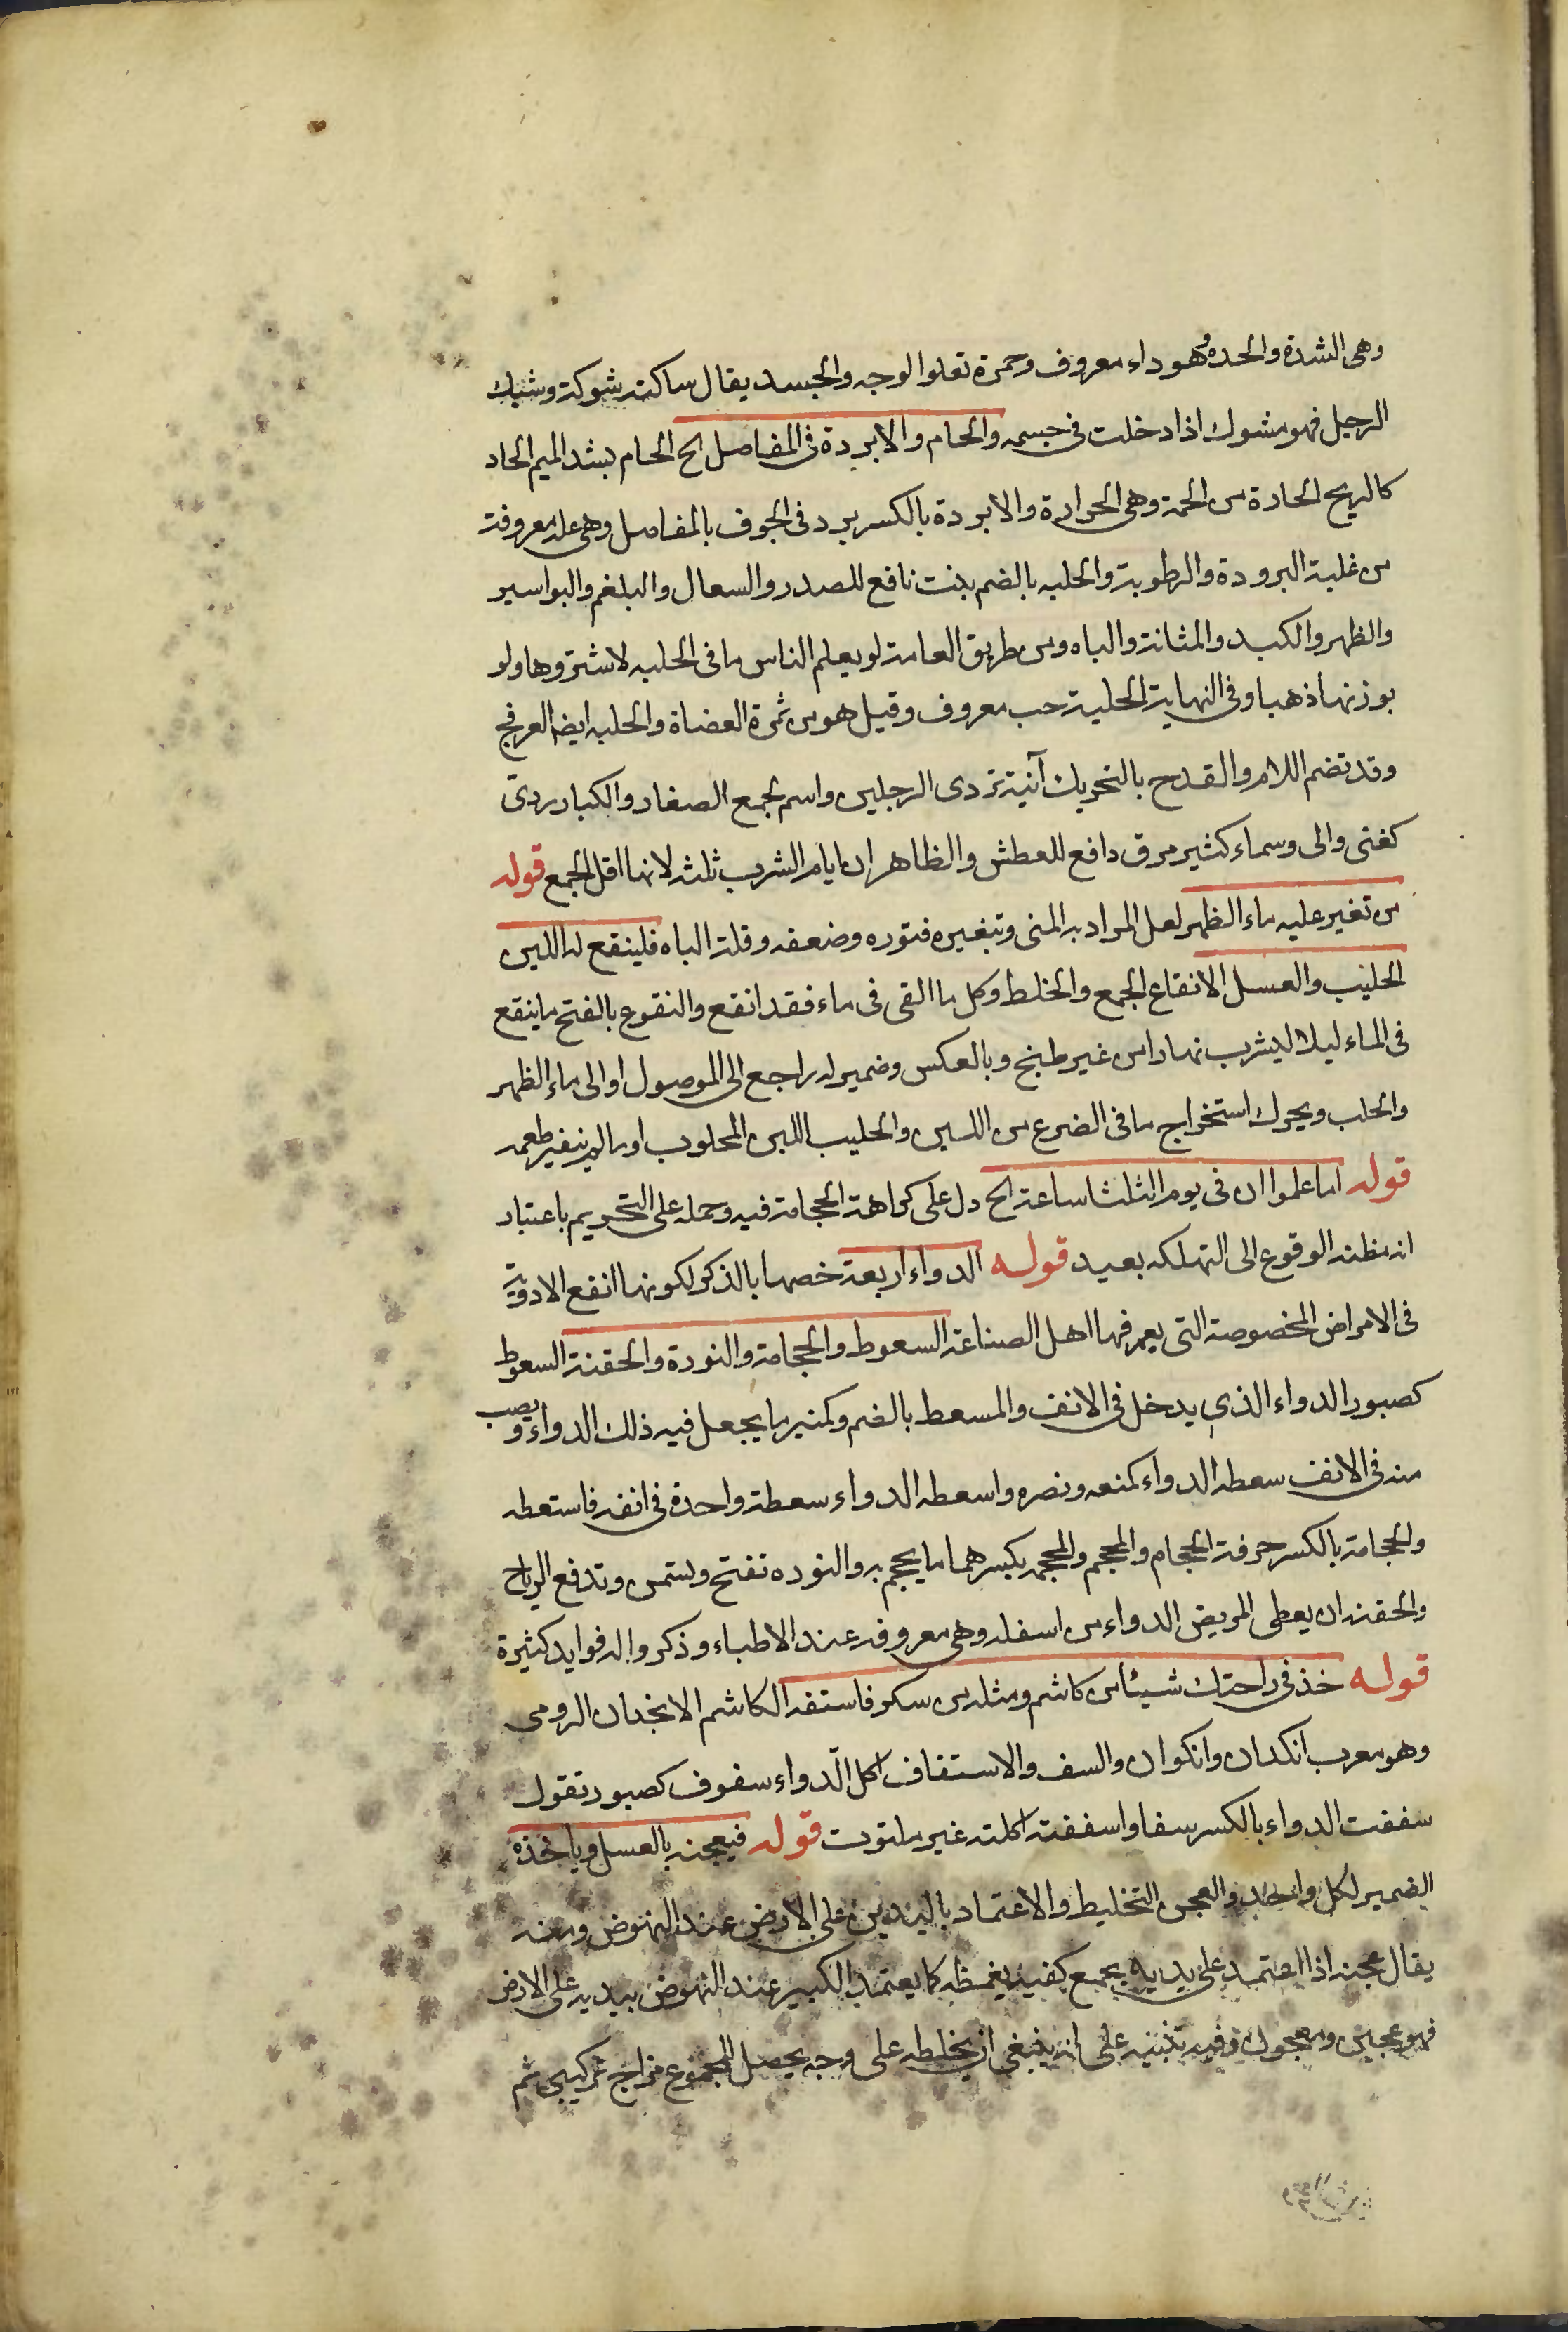 وهى الشدة والحده وهو داء معروف وحمرة تعلوا الوجه والجسد يقال شاكته شوكة وشيك
الرجل فهو مشوك اذا دخلت فى جسمه والحام والابردة فى المفاصل الخ الحام بشد الميم الحاد
كالريح الحادة من الحمة وهى الحرارة والابردة بالكسر برد فى الجوف بالمفاصل وهى علة معروفة
من غلبة البرودة والرطوبة والحلبه بالضم بنت نافع للصدر والسعال والبلغم والبواسير
والظهر والكبد والمثانة والباه ومن طريق العامة لو يعلم الناس ما فى الحلبه لاشتروها ولو
بوزنها ذهبا وفى النهاية الحلبة حب معروف وقيل هو من ثمرة العضاة والحلبه ايضا العرفج
وقد تضم اللام والقدح بالتحريك آنية تروى الرجلين واسم لجمع الصغار والكبار روىّ
كغنى والى وسماء كثير مرو دافع للعطش والظاهر ان ايام الشرب ثلثه لانها اقل الجمع قوله
من تغير عليه ماء الظهر لعل المراد به المنى وتبغيره فتوره وضعفه وقلة الباه فلينقع له اللبن
الحليب والعسل الانقاع الجمع والخلط وكل ما القى فى ماء فقد انقع والنقوع بالفتح ما ينقع
فى الماء ليلا ليشرب نهارا من غير طبخ وبالعكس وضمير له راجع الى الموصول او الى ماء الظهر
والحلب ويحرك استخراج ما فى الضرع من اللبن والحليب اللبن المحلوب او ما لم يتغير طعمه
قوله اما علموا ان فى يوم الثلثا ساعة الخ دل على كراهة الحجامة فيه وحمله على التحريم باعتبار
انه مظنه الوقوع الى التهلكه بعيد قوله الدواء اربعة خصها بالذكر لكونها انفع الادوية
فى الامراض المخصوصة التى يعرفها اهل الصناعة السعوط والحجامة والنورة والحقنة السعوط
كصبور الدواء الذي يدخل فى الانف والمسعط بالضم وكمنبر ما يجعل فيه ذلك الدواء ويصب
منه فى الانف سعطه الدواء كمنعه ونصره واسعطه الدواء سعطة واحدة فى انفه فاستعطه
والحجامة بالكسر حرفة الحجام والمحجم والمحجمه بكسرهما ما يحجم به والنوره تفتح وتسمن وتدفع الرياح
والحقنه ان يعطى المريض الدواء من اسفله وهى معروفه عند الاطباء وذكروا له فوايد كثيرة
قوله خذ فى راحتك شيئا من كاشم ومثله من سكر فاستفه الكاشم الانجدان الرومى
وهو معرب انكدان وانكوان والسف والاستفاف اكل الدّواء سفوف كصبور تقول
سففت الدواء بالكسر سفا واسففته اكلته غير ملتوت قوله فيعجنه بالعسل وياخذه
الضمير لكل واحد والعجن التخليط والاعتماد باليدين على الارض عند النهوض ومنه
يقال عجنه اذا اعتمد على يديه بجمع كفيه يغمظه كما يعتمد الكبير عند النهوض بيديه على الارض
فهو عجين ومعجون وفيه تنبيه على انه ينبغى ان يخلطه على وجه يحصل للمجموع مزاج تركيبى ثم